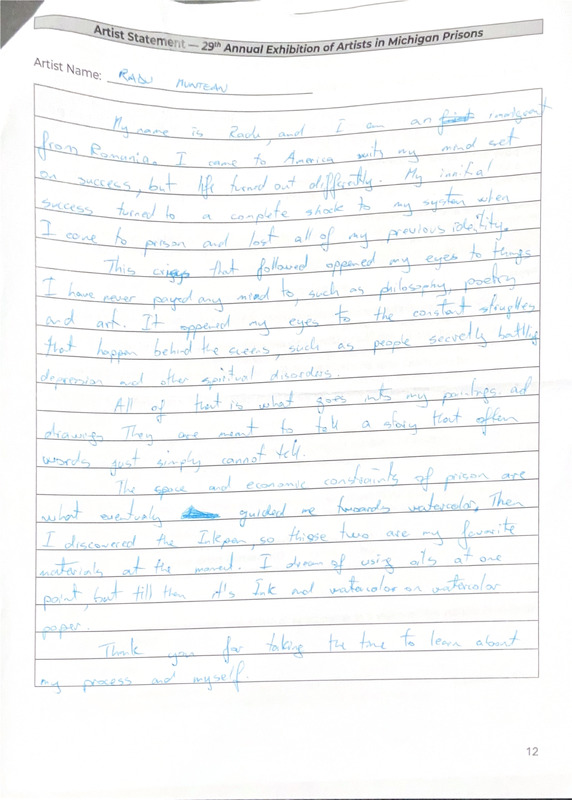 Artist Statement — 29th Annual Exhibition of Artists in Michigan Prisons
Artist Name: RADU MUNTEAN
My name is Radu, and I am an imigrent
from Romania. I came to America with my mind set
on success, but life turned out differently. My innitial
success turned to a complete shock to my system when
I come to prison and lost all of my previous identity.
This crisys that followed oppened my eyes to things
I have never payed any mind to, such as philosophy, poetry
and art. It oppened my eyes to the constant struggles
that happen behind the sceens, such as people secretly battling
depression and other spiritual disorders.
All of that is what goes into my paintings and
drawings They are meant to tell a story that often
words just simply cannot tell.
The space and economic constraints of prison are
what eventualy guided me towards watercolor. Then
I discovered the Inkpen, so thiose two are my favorite
materials at the moment. I dream of using oils at one
point, but till then it's Ink and watercolor on watercolor
paper.
Thank you for taking the time to learn about
my process and myself.
12